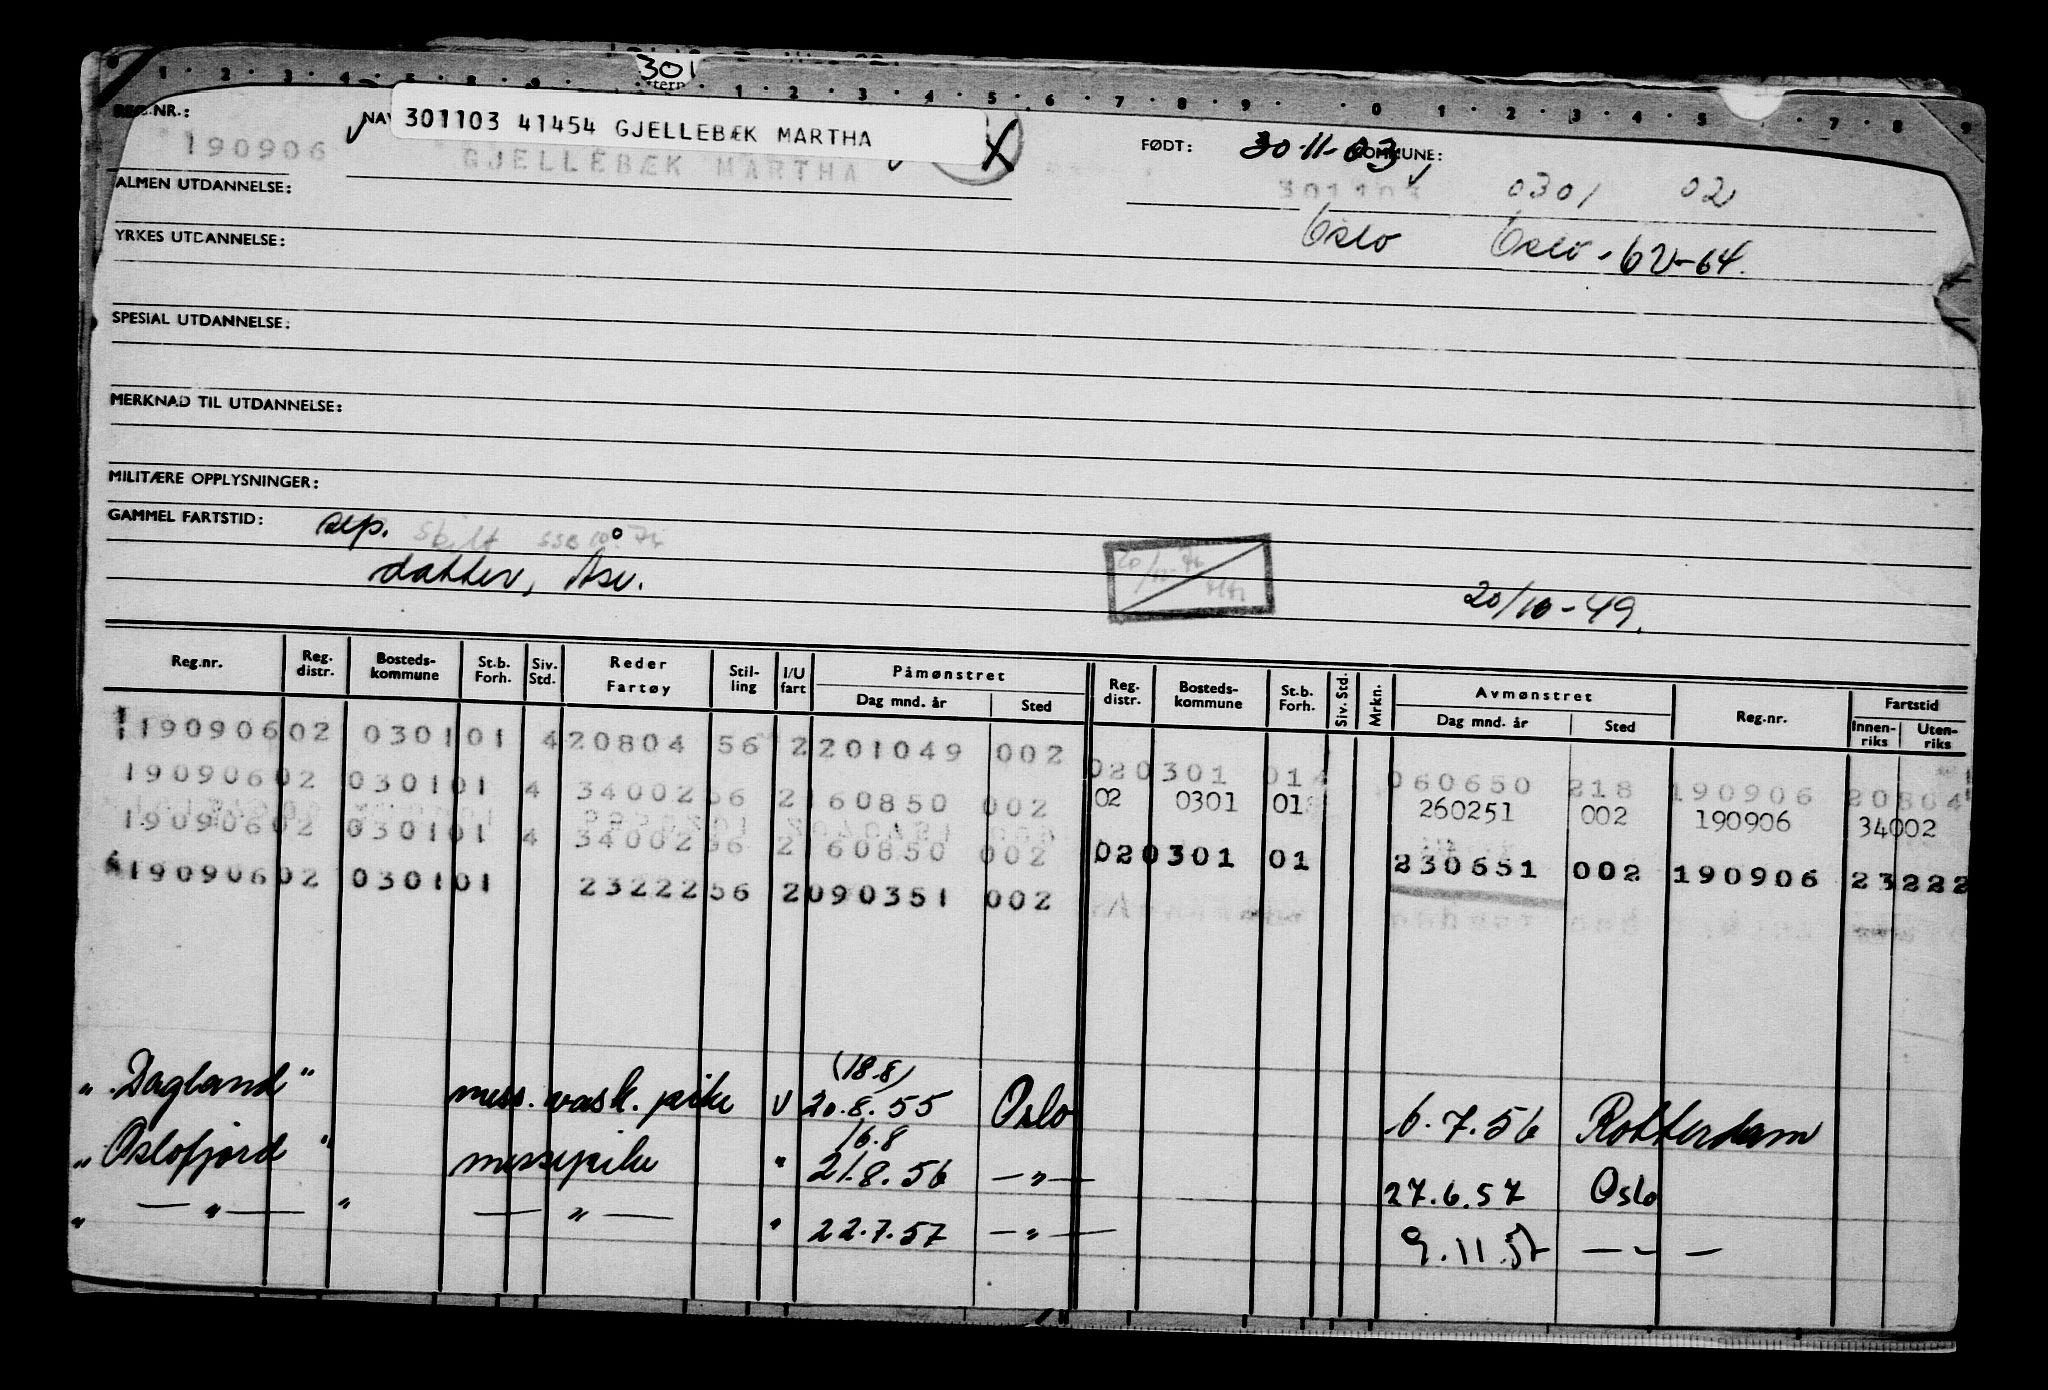 301
301103 41454 GJELLEBÆK MARTHA
REG.NR.:
190906
GJELLEBÆK MARTHA
FØDT: 30-11-03
KOMMUNE:
301103 0301 02
Oslo Oslo - 62-64.
ALMEN UTDANNELSE:
YRKES UTDANNELSE:
SPESIAL UTDANNELSE:
MERKNAD TIL UTDANNELSE:
MILITÆRE OPPLYSNINGER:
GAMMEL FARTSTID: sep. skilt
datter, Ase.
20/10-49.
Reg.nr. Reg. distr. Bosteds-kommune St.b. Forh. Siv. Std. Reder Fartøy Stil-ling I/U fart Påmønstret Dag mnd. år Sted Reg. distr. Bosteds-kommune St.b. Forh. Siv. Std. Mrkn. Avmønstret Dag mnd. år Sted Reg.nr. Fartstid Innen-riks Uten-riks
190906 02 0301 01 4 20804 56 2 201049 002 02 0301 01 4 060650 218 190906 20804
190906 02 0301 01 4 34002 56 2 160850 002 02 0301 01 260251 002 190906 34002
190906 02 0301 01 4 34002 56 2 160850 002 02 0301 01 230651 002 190906 23222
190906 02 0301 01 23222 56 2 090351 002
(18.8)
"Dagland" mess. vask. pike U 20.8.55 Oslo 6.7.56 Rotterdam
16.8
"Oslofjord" messepike " 21.8.56 —"— 27.6.57 Oslo
" —"— " —"— " 22.7.57 —"— 9.11.57 —"—